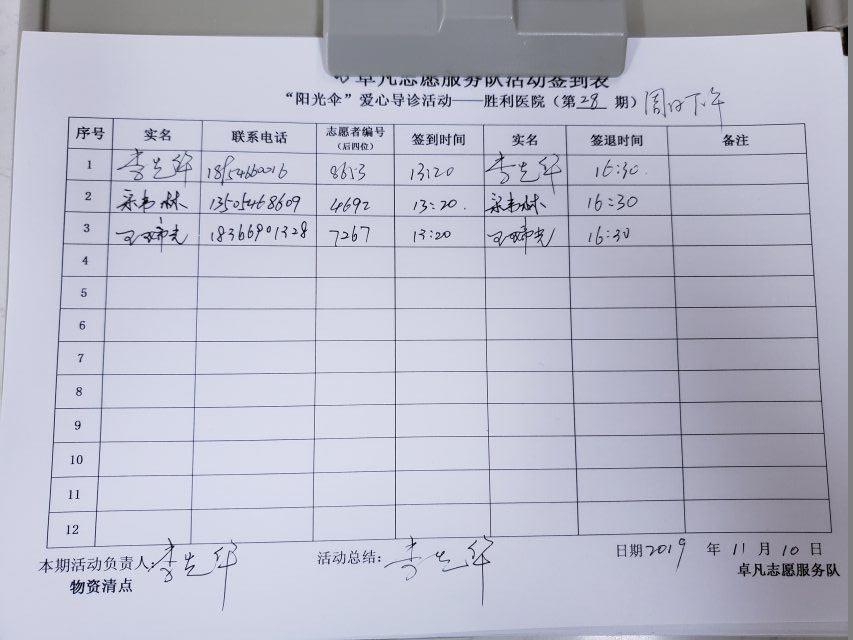 卓凡志愿服务队活动签到表
“阳光伞”爱心导诊活动——胜利医院（第28期）周日下午
序号 实名 联系电话 志愿者编号（后四位） 签到时间 实名 签退时间 备注
1 李先华 18954660016 8653 13:20 李先华 16:30
2 13505468609 4692 13:20. 16:30
3 18366901328 7267 13:20 16:30
4
5
6
7
8
9
10
11
12
本期活动负责人：李先华 活动总结：李先华 日期2019年11月10日
物资清点 卓凡志愿服务队